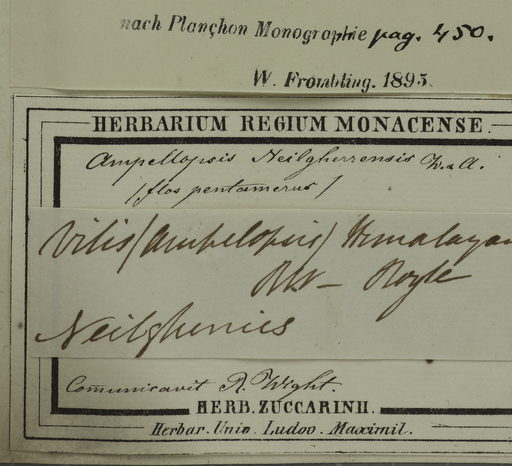 nach Planchon Monographie pag. 450.
W. Frombling. 1895.
HERBARIUM REGIUM MONACENSE.
Ampellopsis Neilgherrensis W. & A.
(flos pentamerus)
Vitis (Ampelopsis) Himalayan
Royle
Neilgherries
Communicavit R. Wight.
HERB. ZUCCARINII.
Herbar. Univ. Ludov. Maximil.